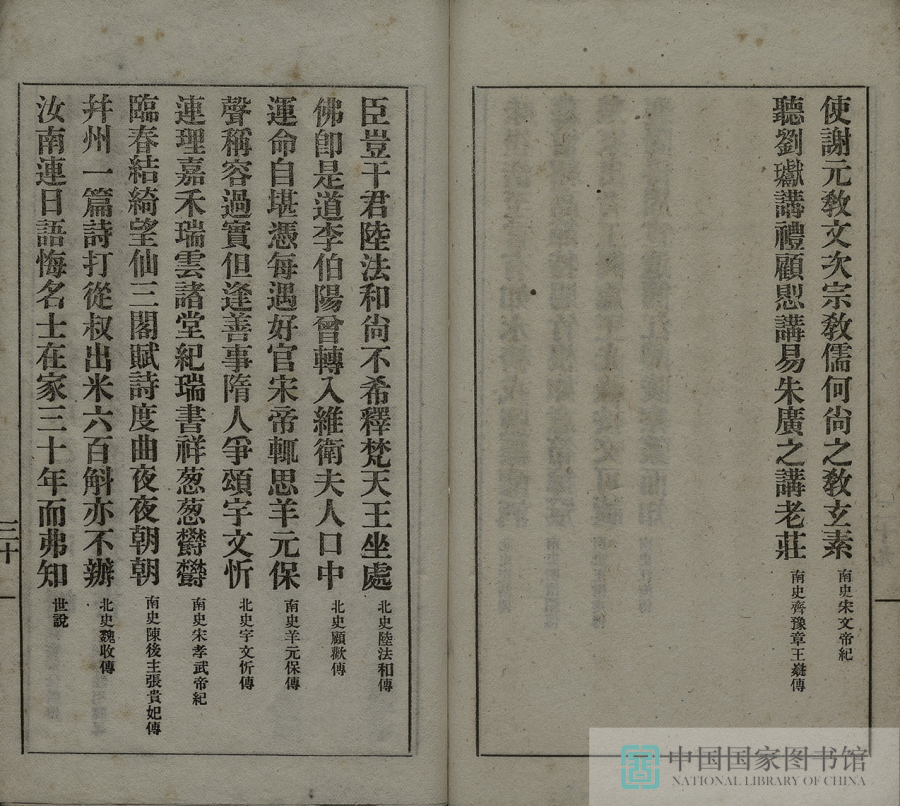 使謝元教文次宗教儒何尙之教玄素 南史宋文帝紀
聽劉瓛講禮顧懽講易朱廣之講老莊 南史齊豫章王嶷傳
臣豈干君陸法和尙不希釋梵天王坐處 北史陸法和傳
佛卽是道李伯陽曾轉入維衛夫人口中 北史顧歡傳
運命自堪憑每遇好官宋帝輒思羊元保 南史羊元保傳
聲稱容過實但逢善事隋人爭頌宇文忻 北史宇文忻傳
連理嘉禾瑞雲諸堂紀瑞書祥葱葱鬱鬱 南史宋孝武帝紀
臨春結綺望仙三閣賦詩度曲夜夜朝朝 南史陳後主張貴妃傳
幷州一篇詩打從叔出米六百斛亦不辦 北史魏收傳
汝南連日語悔名士在家三十年而弗知 世說
三十
中国国家图书馆
NATIONAL LIBRARY OF CHINA